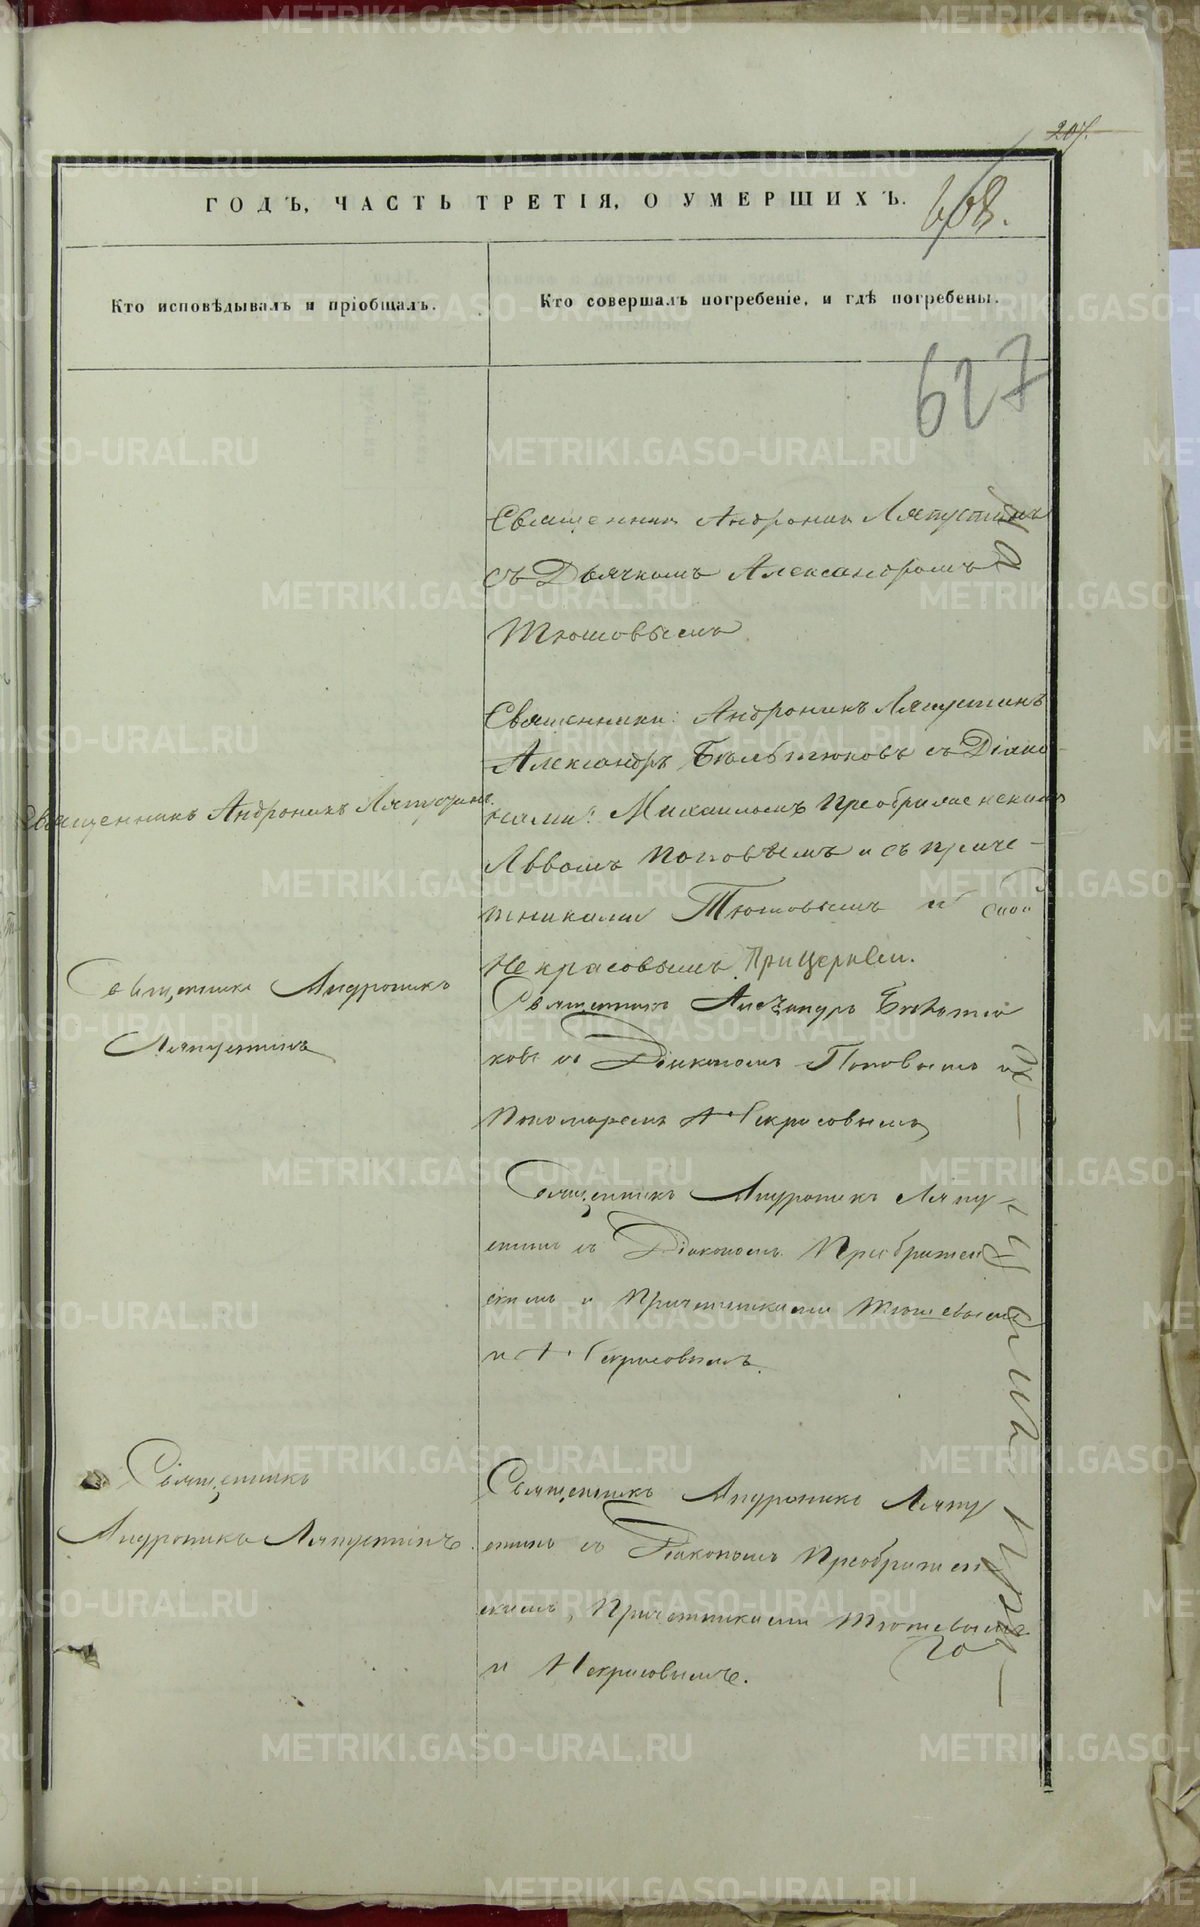 207.
ГОДЪ, ЧАСТЬ ТРЕТІЯ, О УМЕРШИХЪ.
608.
Кто исповѣдывалъ и пріобщалъ.
Кто совершалъ погребеніе, и гдѣ погребены.
627
Священник Андроник Ляпустинъ
съ Дьячкомъ Александромъ
Тюшовымъ
Священники: Андроникъ Ляпустинъ
Александръ Бѣльтюковъ съ Діако-
нами: Михаиломъ Преображенскимъ
Львомъ Поповымъ и съ приче-
тниками Тюшовымъ и
Некрасовымъ При Церкви.
Священникъ Андроникъ Ляпустинъ.
Священникъ Андроникъ
Ляпустинъ
Священникъ Александръ Бѣльтю
ковъ съ Діакономъ Поповымъ и
Пономаремъ Некрасовымъ
Священникъ Андроникъ Ляпу
стинъ съ Діакономъ Преображен
скимъ и Причетниками Тюшевымъ
и Некрасовымъ.
Священникъ
Андроникъ Ляпустинъ.
Священникъ Андроникъ Ляпу
стинъ съ Діакономъ Преображен
скимъ, Причетниками Тюшевымъ
и Некрасовымъ.
METRIKI.GASO-URAL.RU